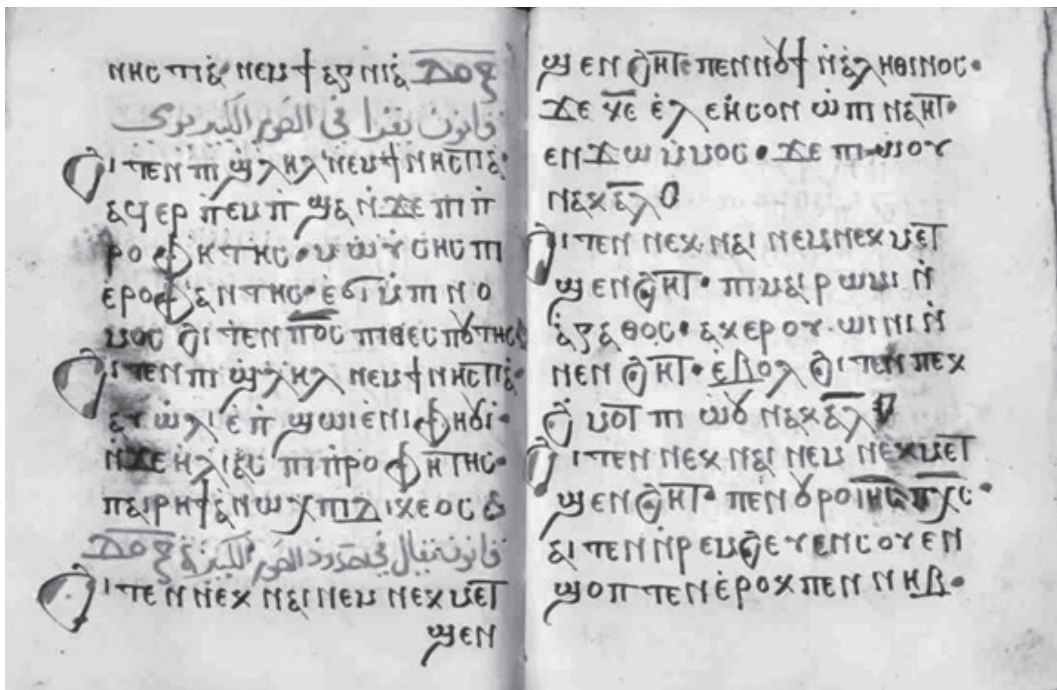 ⲛⲏⲥⲧⲓⲁ̀· ⲛⲉⲙϯⲁⲅⲛⲓⲁ̀ ⲇⲟⲝ
قانون يقرا في الصوم الكبير
ϩⲓⲧⲉⲛ ⲡⲓϣⲗⲏⲗ ⲛⲉⲙϯⲛⲏⲥⲧⲓⲁ̀·
ⲁϥⲉⲣ ⲡ̀ⲉⲙⲡ̀ϣⲁ ⲛ̀ϫⲉ ⲡⲓⲡ̀
ⲣⲟⲫⲏⲧⲏⲥ· ⲙⲱⲩⲥⲏⲥ ⲡⲓ
ⲉ̀ⲣⲟⲫⲁⲛⲧⲏⲥ· ⲉ̀ϭⲓⲙ̀ⲡⲓⲛⲟ
ⲙⲟⲥ ϩⲓⲧⲉⲛ ⲡⲟ̅ⲥ̅ ⲡⲓⲑⲉⲥⲡⲟⲩⲧⲏⲥ
ϩⲓⲧⲉⲛ ⲡⲓϣⲗⲏⲗ ⲛⲉⲙϯⲛⲏⲥⲧⲓⲁ̀·
ⲁⲩⲱ̀ⲗⲓ ⲉ̀ⲡ̀ϣⲱⲓ ⲉⲛⲓⲫⲏⲟⲩⲓ·
ⲛ̀ϫⲉ ⲏ̀ⲗⲓⲁⲥ ⲡⲓⲡ̀ⲣⲟⲫⲏⲧⲏⲥ·
ⲡⲁⲓⲣⲏϯ ⲉⲛⲱⲭ ⲡⲓⲇⲓⲕⲉⲟⲥ
قانون يقال في حدود الصوم الكبير ⲇⲟⲝ
ϩⲓⲧⲉⲛ ⲛⲉⲕ ⲛⲁⲓ ⲛⲉⲙ ⲛⲉⲕⲙⲉⲧ
ϣⲉⲛ
ϣⲉⲛϩⲏⲧ ⲡⲉⲛⲛⲟⲩϯ ⲛ̀ⲁⲗⲏⲑⲓⲛⲟⲥ·
ϫⲉ ⲕ̅ⲉ̅ ⲉ̀ⲗⲉⲏ̀ⲥⲟⲛ ⲱ̀ ⲡⲓⲛⲁⲏⲧ·
ⲉⲛϫⲱ ⲙ̀ⲙⲟⲥ· ϫⲉ ⲡⲓⲱⲟⲩ
ⲛⲁⲕ ⲁ̅ⲗ̅
ϩⲓⲧⲉⲛ ⲛⲉⲕ ⲛⲁⲓ ⲛⲉⲙ ⲛⲉⲕ ⲙⲉⲧ
ϣⲉⲛϩⲏⲧ· ⲡⲓⲙⲁⲓⲣⲱⲙⲓ ⲛ̀
ⲁⲅⲁⲑⲟⲥ· ⲁⲕⲉⲣⲟⲩⲱⲓⲛⲓ ⲛ̀
ⲛⲉⲛϩⲏⲧ· ⲉ̀ⲃⲟⲗ ϩⲓⲧⲉⲛ ⲡⲉⲕ
ϩⲙⲟⲧ ⲡⲓⲱ̀ⲟⲩ ⲛⲁⲕ ⲁ̅ⲗ̅
ϩⲓⲧⲉⲛ ⲛⲉⲕ ⲛⲁⲓ ⲛⲉⲙ ⲛⲉⲕⲙⲉⲧ
ϣⲉⲛϩⲏⲧ· ⲡⲉⲛⲟⲩⲣⲟ ⲓⲏ̅ⲥ̅ ⲡ̅ⲭ̅ⲥ̅·
ⲁⲓⲧⲉⲛ ⲛ̀ⲣⲉⲙϩⲉⲩ ⲉⲛⲥⲟⲩⲉⲛ
ϣⲟⲡⲧⲉⲛ ⲉ̀ⲣⲟⲕ ⲡⲉⲛⲛⲏⲃ·